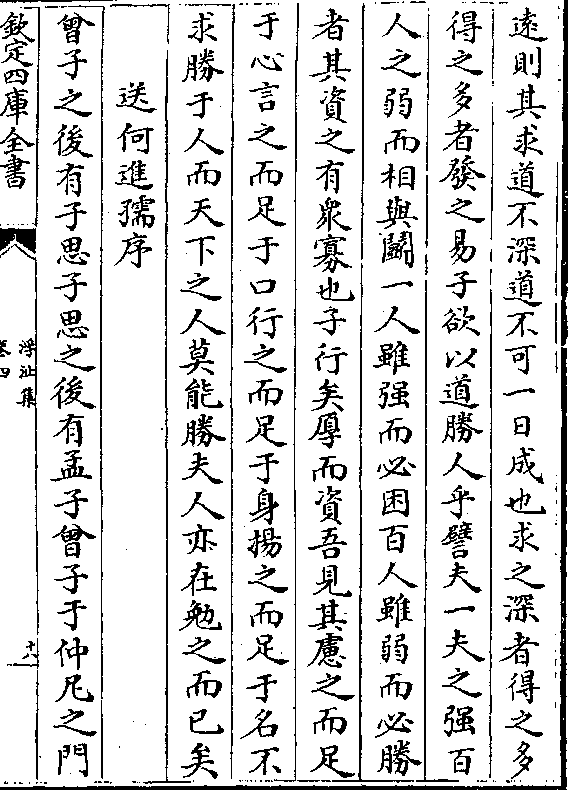 遠則其求道不深道不可一日成也求之深者得之多
得之多者發之易子欲以道勝人乎譬夫一夫之强百
人之弱而相與鬭一人雖强而必困百人雖弱而必勝
者其資之有衆寡也子行矣厚而資吾見其慮之而足
于心言之而足于口行之而足于身揚之而足于名不
求勝于人而天下之人莫能勝夫人亦在勉之而已矣
送何進孺序
曾子之後有子思子思之後有孟子曾子于仲尼之門
欽定四庫全書
浮沚集
卷四
十六